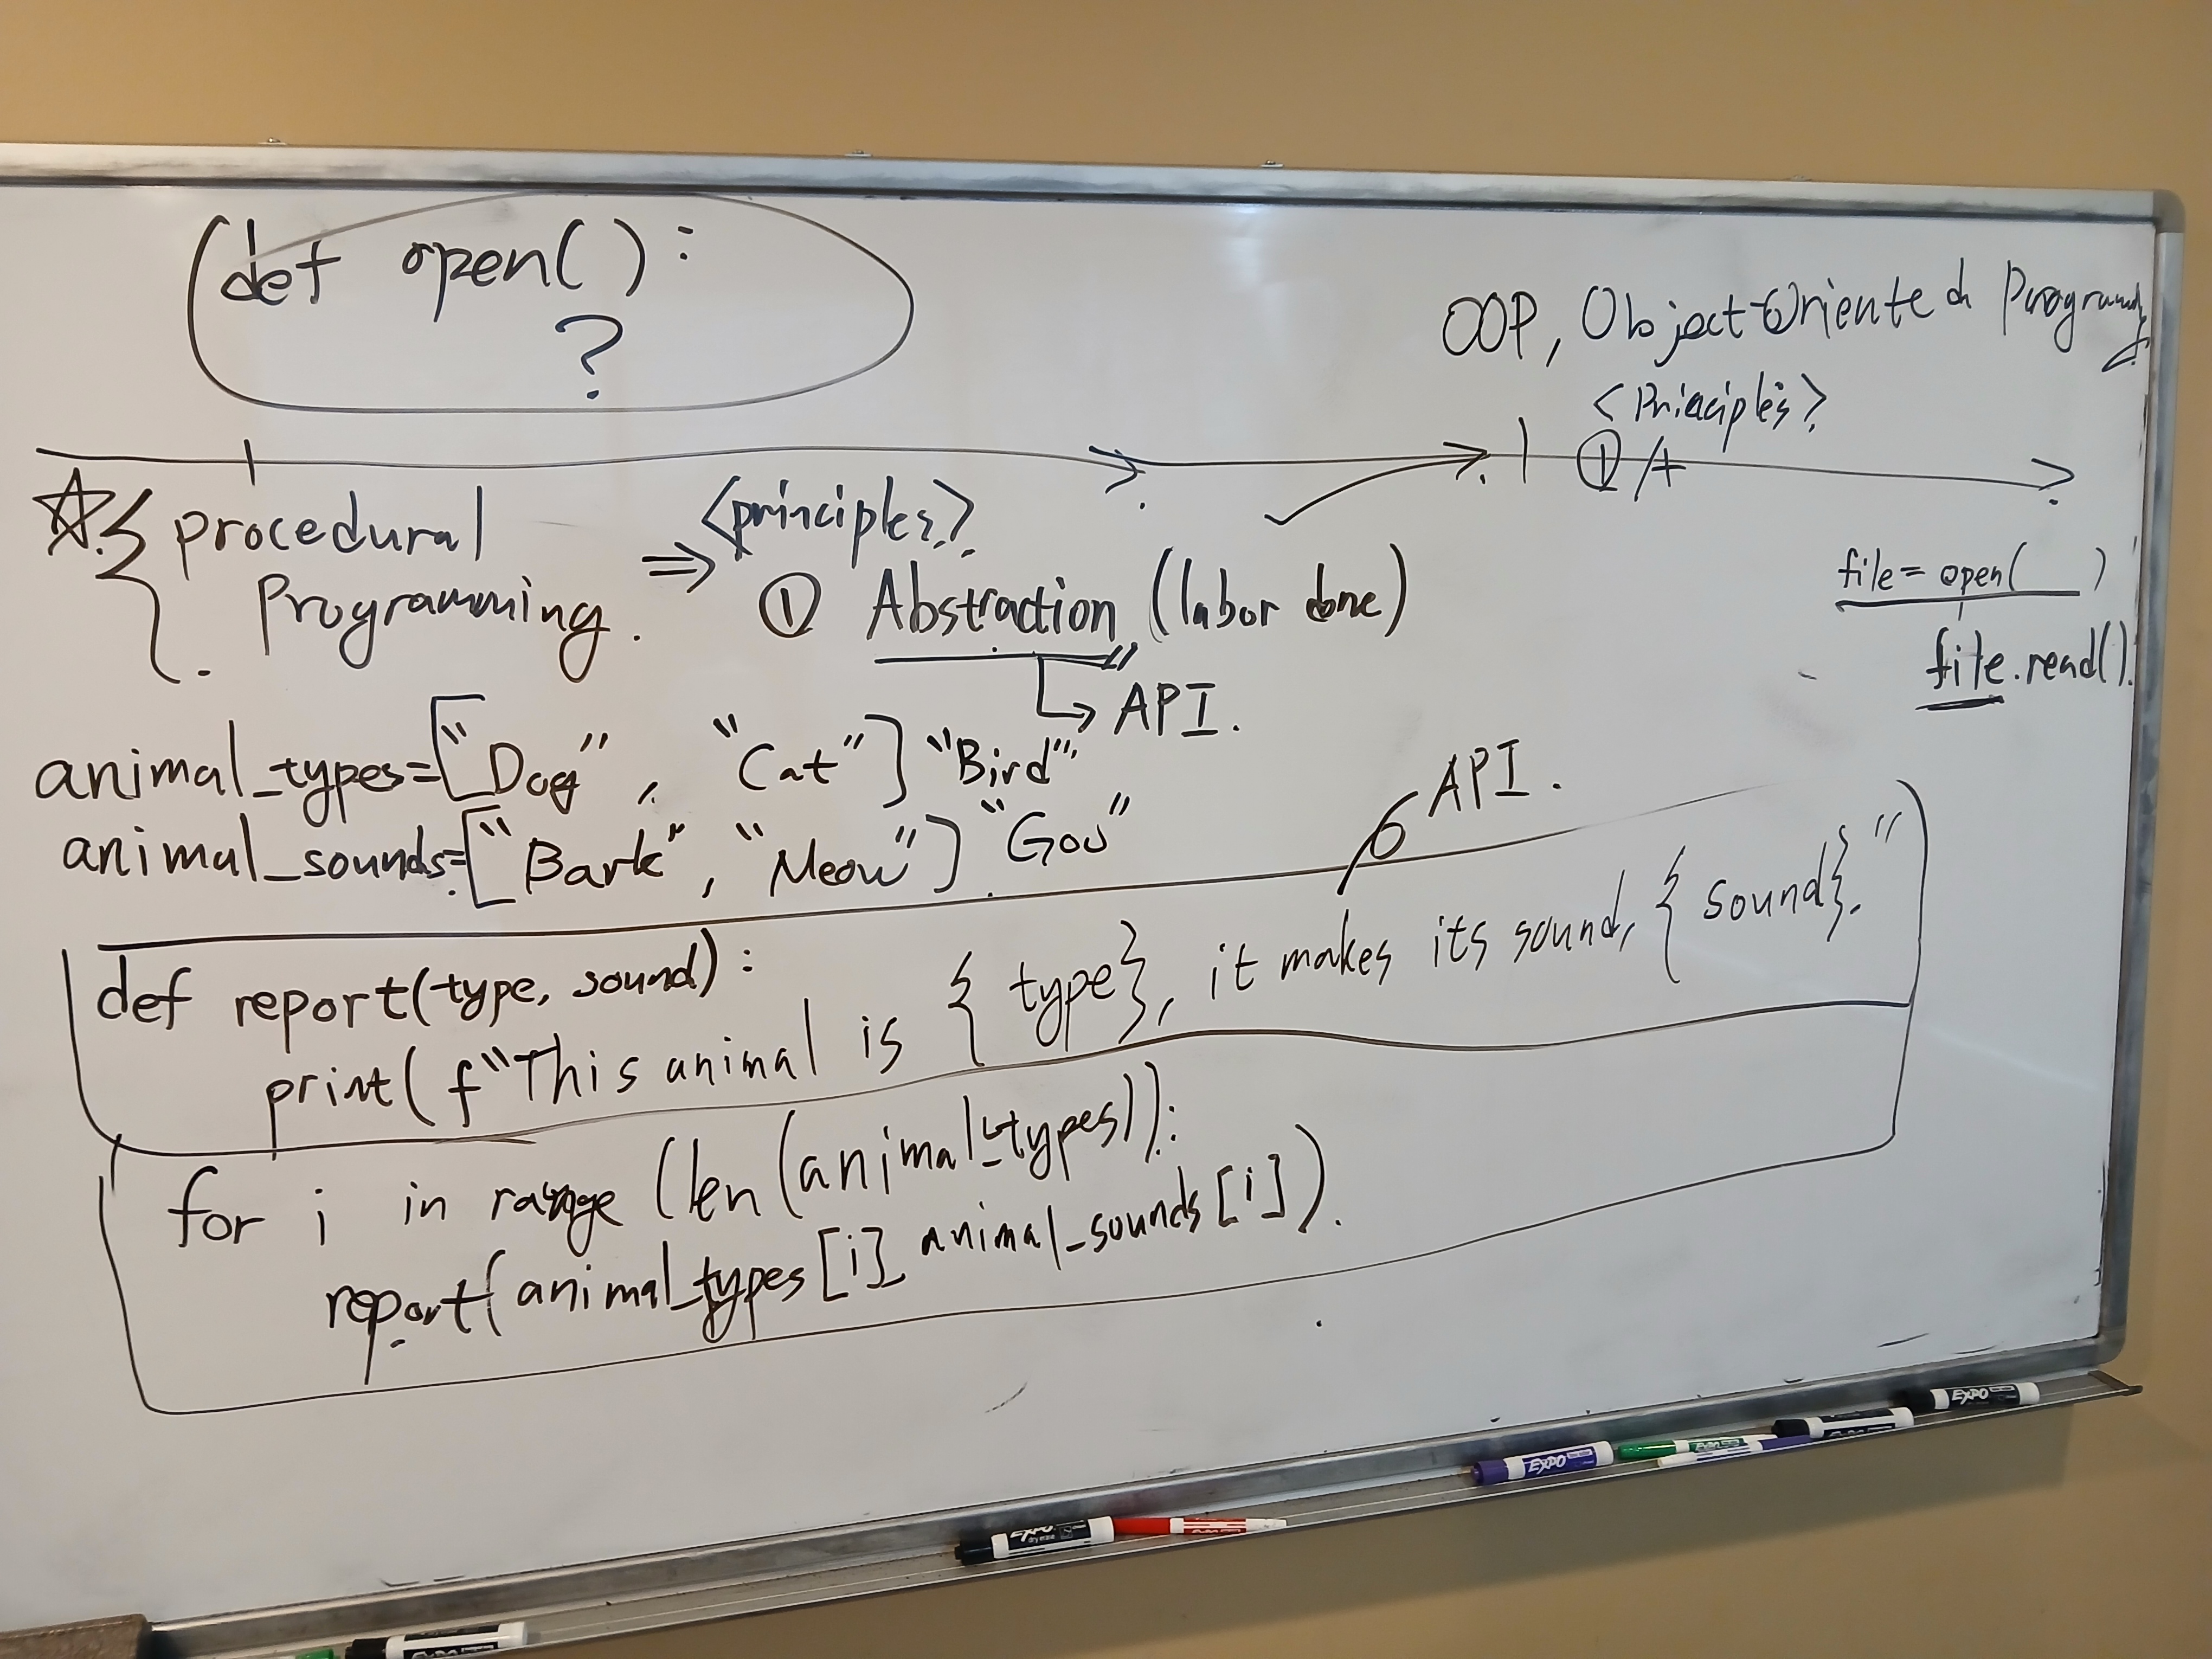 def open():
?
OOP, Object-Oriented Programming
<Principles>
① A
☆ procedural
Programming.
⇒ <principles>
① Abstraction (labor done)
→ API.
file = open(___)
file.read().
animal_types=["Dog", "Cat"] "Bird"
animal_sounds=["Bark", "Meow"] "Goo"
API.
def report(type, sound):
print(f"This animal is {type}, it makes its sound, {sound}."
for i in range (len(animal_types)):
report(animal_types[i] animal_sounds[i]).
EXPO
EXPO
EXPO
EXPO